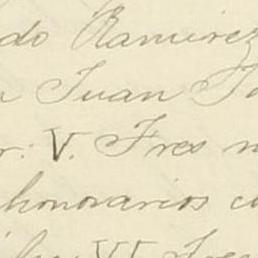 do Ramirez
Juan
r. V. Fres
honorarios
VI. Fres